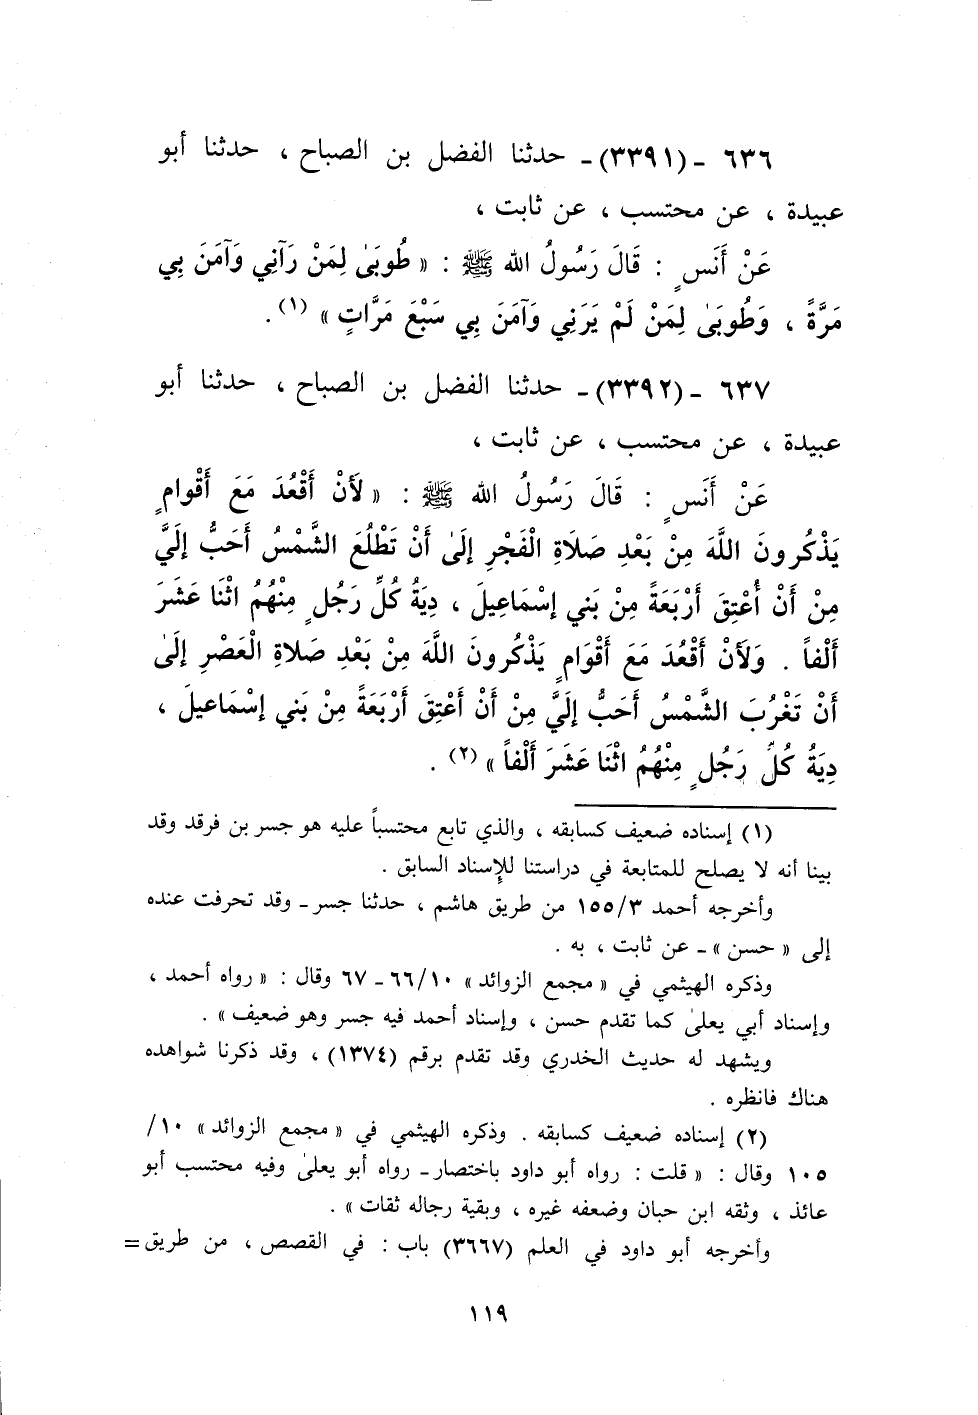 ٦٣٦ ـ (٣٣٩١) ـ حدثنا الفضل بن الصباح ، حدثنا أبو
عبيدة ، عن محتسب ، عن ثابت ،
عَنْ أَنَسٍ : قَالَ رَسُولُ الله ﷺ : « طُوبَىٰ لِمَنْ رَآنِي وَآمَنَ بِي
مَرَّةً ، وَطُوبَىٰ لِمَنْ لَمْ يَرَنِي وَآمَنَ بِي سَبْعَ مَرَّاتٍ » (١) .
٦٣٧ ـ (٣٣٩٢) ـ حدثنا الفضل بن الصباح ، حدثنا أبو
عبيدة ، عن محتسب ، عن ثابت ،
عَنْ أَنَسٍ : قَالَ رَسُولُ الله ﷺ : « لَأَنْ أَقْعُدَ مَعَ أَقْوامٍ
يَذْكُرونَ اللَّهَ مِنْ بَعْدِ صَلَاةِ الْفَجْرِ إلَىٰ أَنْ تَطْلُعَ الشَّمْسُ أَحَبُّ إلَيَّ
مِنْ أَنْ أُعْتِقَ أَرْبَعَةً مِنْ بَنِي إسْمَاعِيلَ ، دِيَةُ كُلِّ رَجُلٍ مِنْهُمُ اثْنَا عَشَرَ
أَلْفاً . وَلَأَنْ أَقْعُدَ مَعَ أَقْوَامٍ يَذْكُرونَ اللَّهَ مِنْ بَعْدِ صَلَاةِ الْعَصْرِ إلَىٰ
أَنْ تَغْرُبَ الشَّمْسُ أَحَبُّ إلَيَّ مِنْ أَنْ أَعْتِقَ أَرْبَعَةً مِنْ بَنِي إسْمَاعيلَ ،
دِيَةُ كُلِّ رَجُلٍ مِنْهُمُ اثْنَا عَشَرَ أَلْفاً » (٢) .
(١) إسناده ضعيف كسابقه ، والذي تابع محتسباً عليه هو جسر بن فرقد وقد
بينا أنه لا يصلح للمتابعة في دراستنا للإسناد السابق .
وأخرجه أحمد ٣/ ١٥٥ من طريق هاشم ، حدثنا جسر ـ وقد تحرفت عنده
إلى « حسن » ـ عن ثابت ، به .
وذكره الهيثمي في « مجمع الزوائد » ١٠/ ٦٦ ـ ٦٧ وقال : « رواه أحمد ،
وإسناد أبي يعلىٰ كما تقدم حسن ، وإسناد أحمد فيه جسر وهو ضعيف » .
ويشهد له حديث الخدري وقد تقدم برقم (١٣٧٤) ، وقد ذكرنا شواهده
هناك فانظره .
(٢) إسناده ضعيف كسابقه . وذكره الهيثمي في « مجمع الزوائد » ١٠/
١٠٥ وقال : « قلت : رواه أبو داود باختصار ـ رواه أبو يعلىٰ وفيه محتسب أبو
عائذ ، وثقه ابن حبان وضعفه غيره ، وبقية رجاله ثقات » .
وأخرجه أبو داود في العلم (٣٦٦٧) باب : في القصص ، من طريق =
١١٩